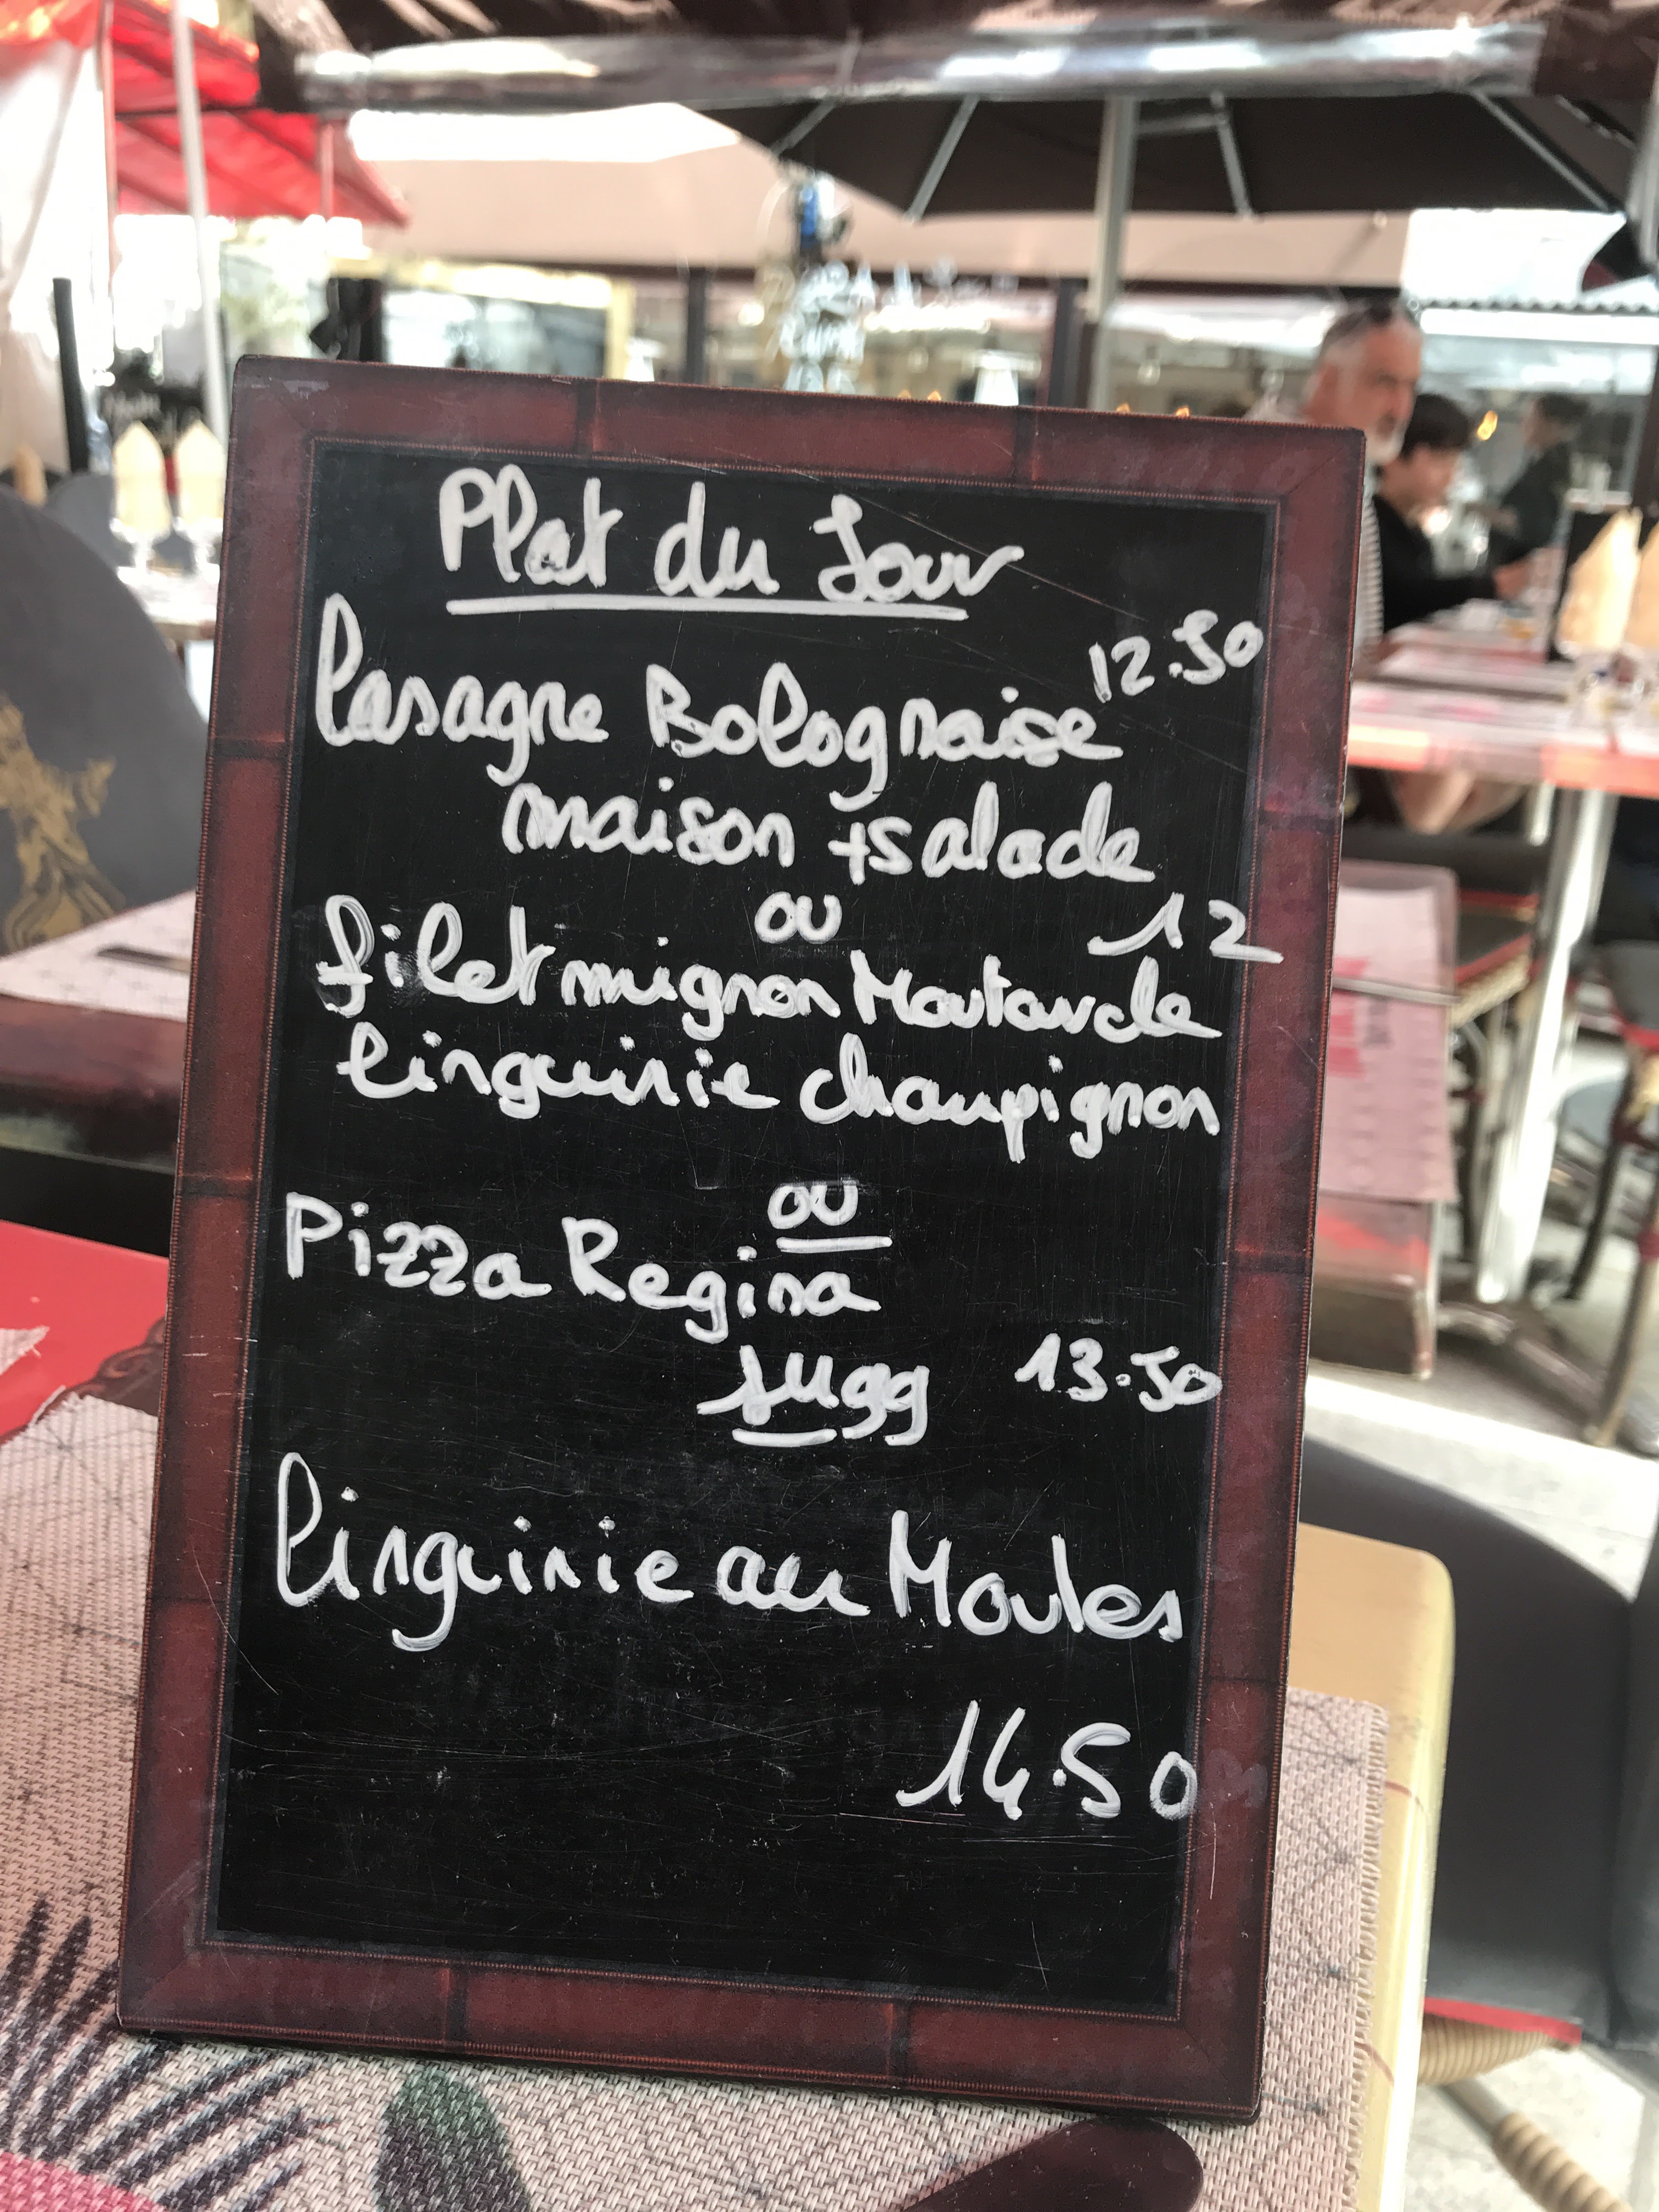 Plat du Jour
12.50
Lasagne Bolognaise
maison + salade
ou
12
filet mignon Moutarde
linguinie champignon
ou
Pizza Regina
sugg 13.50
linguinie au Moules
14.50